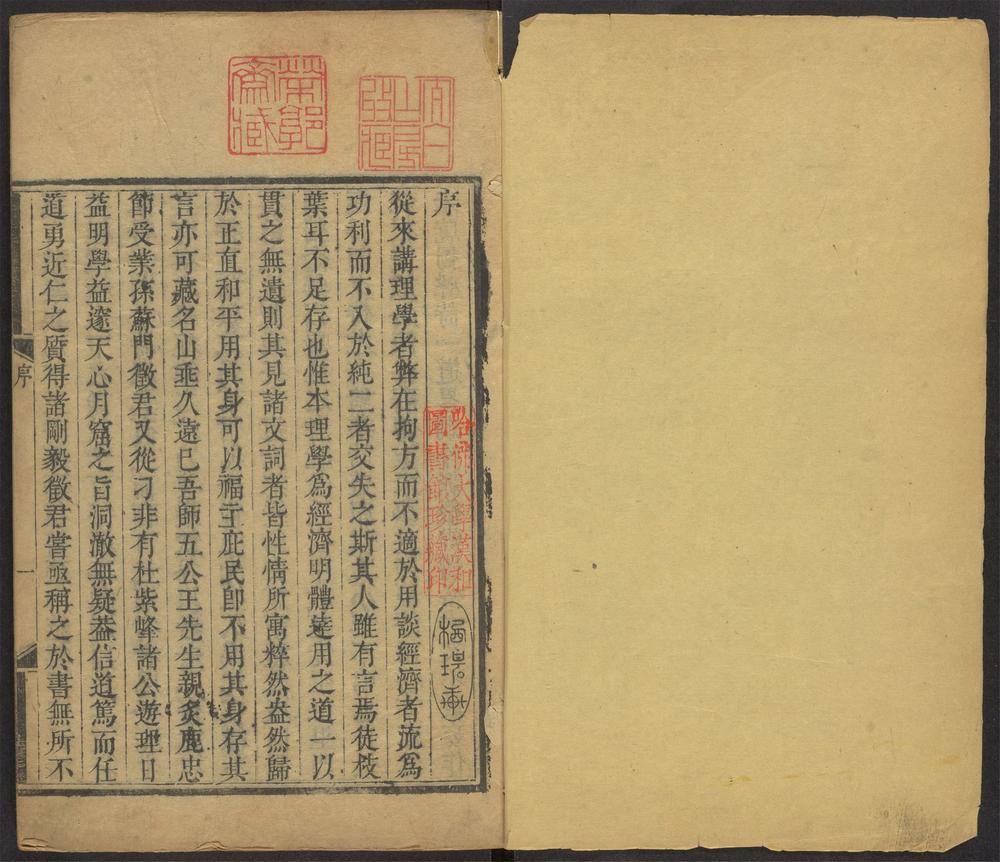 序
從來講理學者弊在拘方而不適於用談經濟者流爲
功利而不入於純二者交失之斯其人雖有言焉徒枝
葉耳不足存也惟本理學爲經濟明體達用之道一以
貫之無遺則其見諸文詞者皆性情所寓粹然盎然歸
於正直和平用其身可以福主庇民卽不用其身存其
言亦可藏名山垂久遠已吾師五公王先生親炙鹿忠
節受業孫蘇門徵君又從刁非有杜紫峰諸公遊理日
益明學益邃天心月窟之旨洞澈無疑葢信道篤而任
道勇近仁之質得諸剛毅徵君嘗亟稱之於書無所不
序
一
哈佛大學漢和
圖書館珍藏印